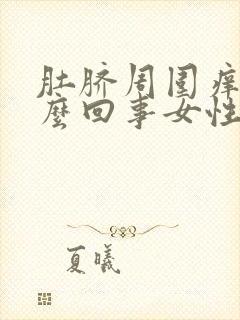 肚脐周围痒
麼回事女性
夏曦